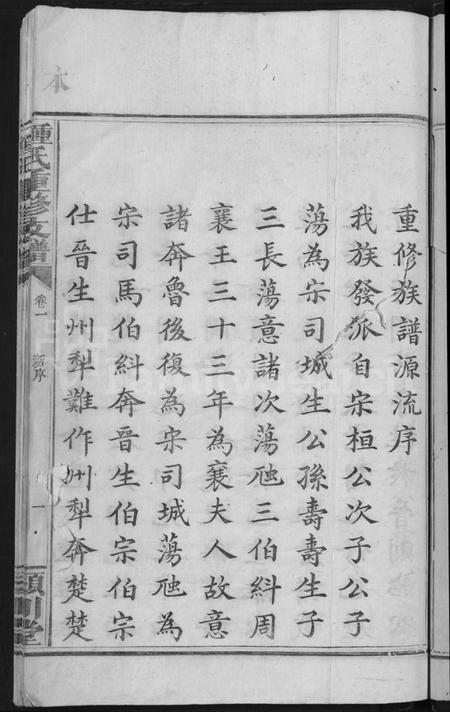 重修族譜源流序
我族發派自宋桓公次子公子
蕩為宋司城生公孫壽壽生子
三長蕩意諸次蕩虺三伯糾周
襄王三十三年為襄夫人故意
諸奔魯後復為宋司城蕩虺為
宋司馬伯糾奔晉生伯宗伯宗
仕晉生州犁難作州犁奔楚楚
鍾氏重修支譜
卷一
新序
一
潁川堂